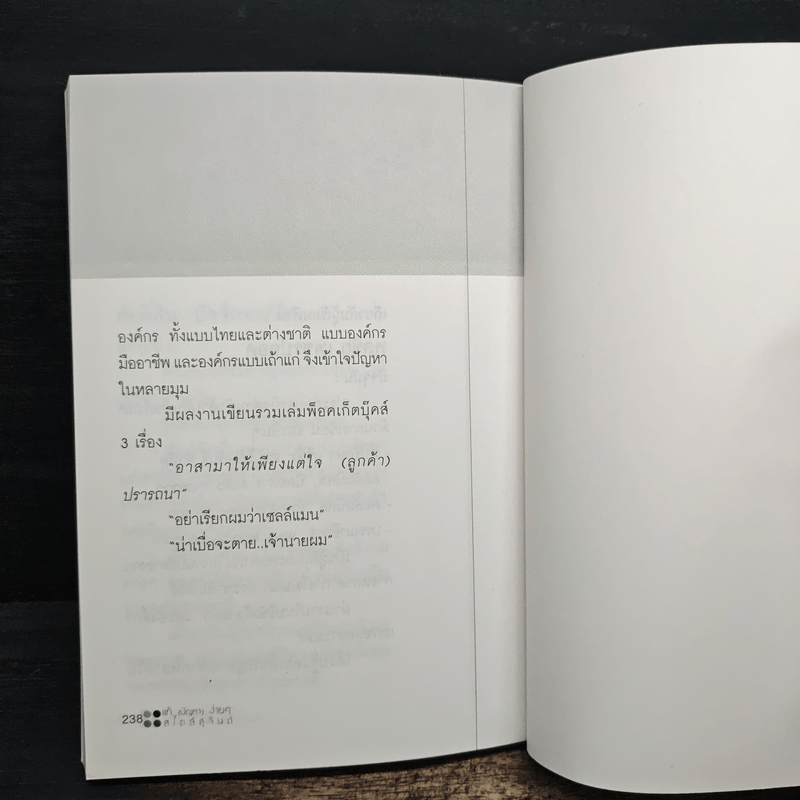 องค์กร ทั้งแบบไทยและต่างชาติ แบบองค์กร
มืออาชีพ และองค์กรแบบเถ้าแก่ จึงเข้าใจปัญหา
ในหลายมุม
มีผลงานเขียนรวมเล่มพ็อคเก็ตบุ๊คส์
3 เรื่อง
"อาสามาให้เพียงแต่ใจ (ลูกค้า)
ปรารถนา"
"อย่าเรียกผมว่าเซลล์แมน"
"น่าเบื่อจะตาย..เจ้านายผม"
238 แก้ (ปัญหา) ง่ายๆ
สไตล์สุจินต์